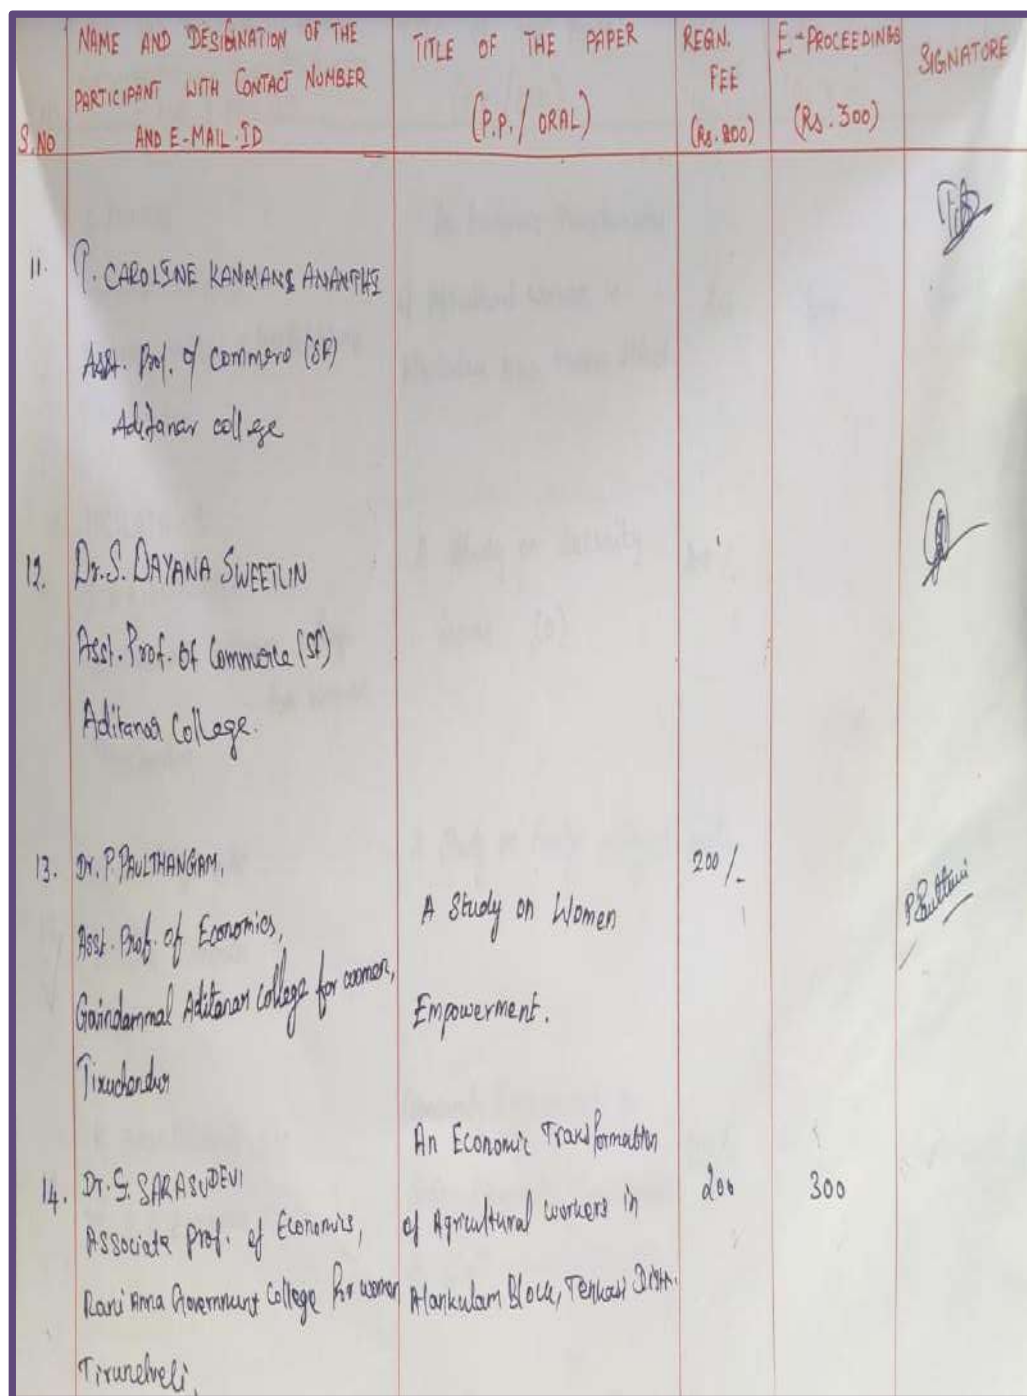 S.NO
NAME AND DESIGNATION OF THE
PARTICIPANT WITH CONTACT NUMBER
AND E-MAIL.ID
TITLE OF THE PAPER
(P.P./ORAL)
REGN.
FEE
(Rs.200)
E-PROCEEDINGS
(Rs.300)
SIGNATORE
11.
P. CAROLINE KANMANI ANANTHI
Asst. Prof. of Commerce (SF)
Aditanar college
12.
Dr.S. DAYANA SWEETLIN
Asst. Prof. Of Commerce (SF)
Aditanar College.
13.
Dr. P. PAULTHANGAM,
Asst. Prof. of Economics,
Govindammal Aditanar college for women,
Tiruchendur
A Study on Women
Empowerment.
200/-
14.
Dr. G. SARASUDEVI
Associate Prof. of Economics,
Rani Anna Government College for women
Tirunelveli,
An Economic Transformation
of Agricultural workers in
Alankulam Block, Tenkasi Distr.
200
300